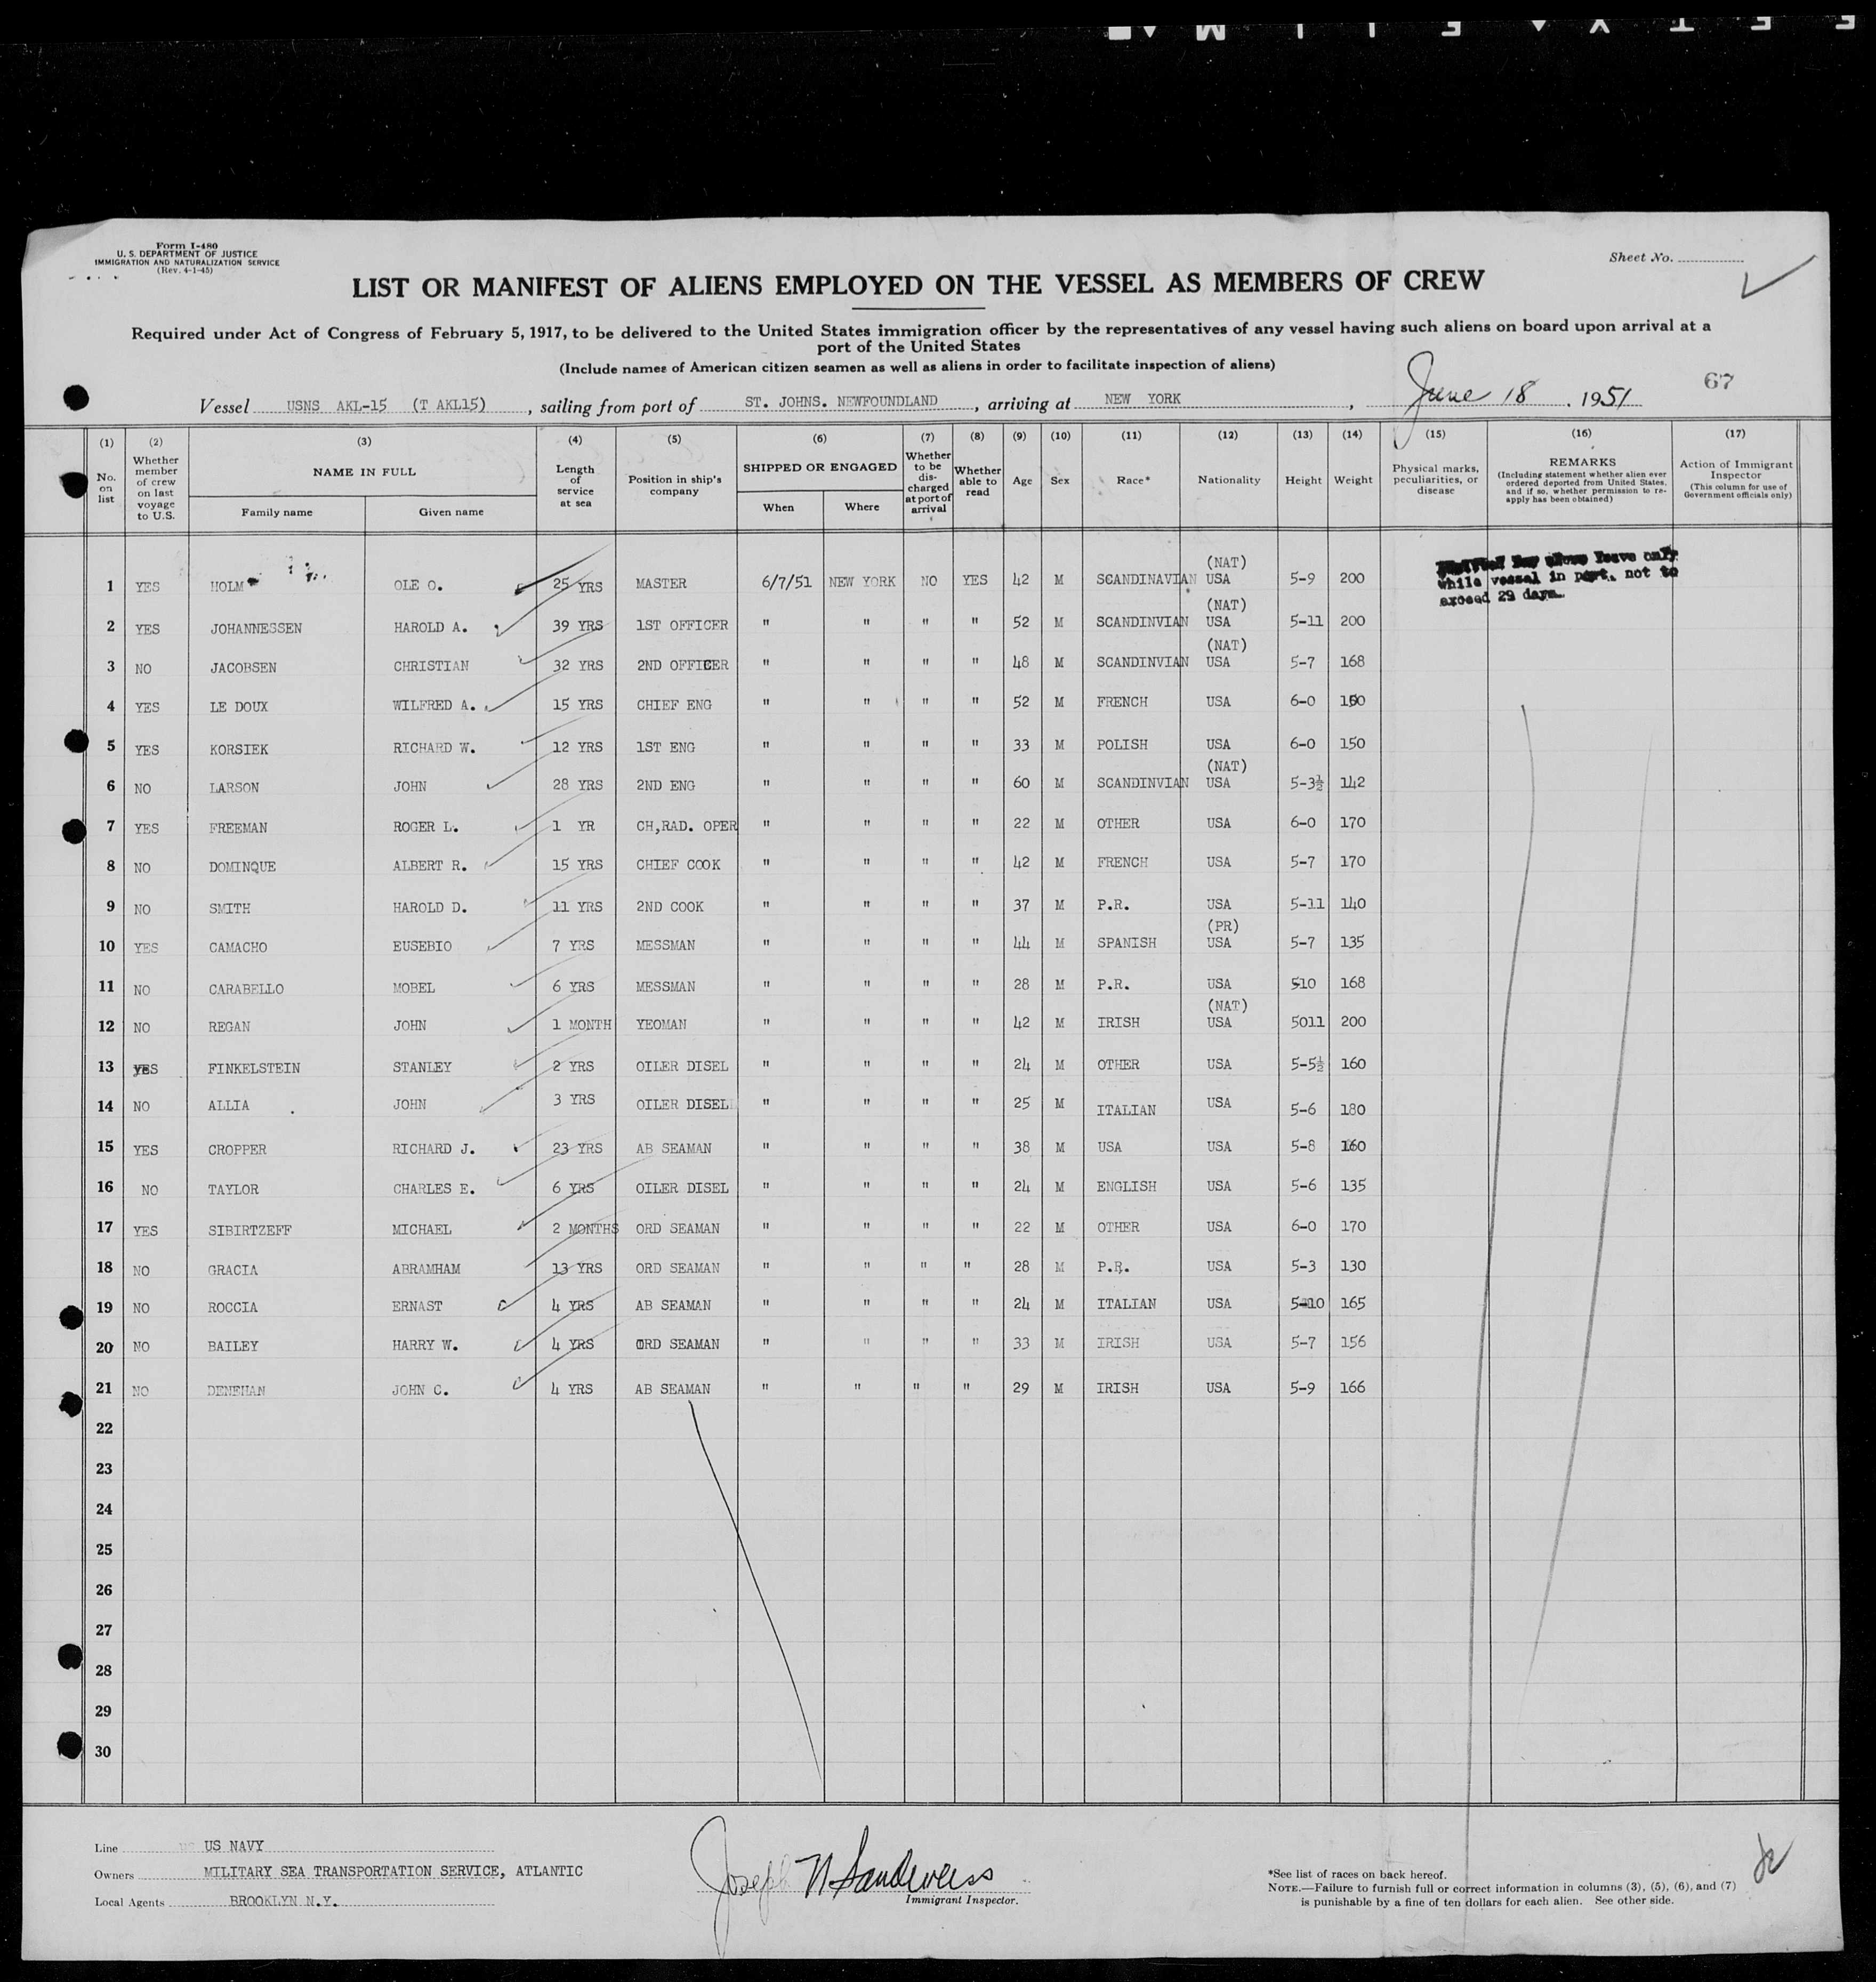 Form I-480
U. S. DEPARTMENT OF JUSTICE
IMMIGRATION AND NATURALIZATION SERVICE
(Rev. 4-1-45)
Sheet No.
LIST OR MANIFEST OF ALIENS EMPLOYED ON THE VESSEL AS MEMBERS OF CREW
Required under Act of Congress of February 5, 1917, to be delivered to the United States immigration officer by the representatives of any vessel having such aliens on board upon arrival at a
port of the United States
(Include names of American citizen seamen as well as aliens in order to facilitate inspection of aliens)
67
Vessel USNS AKL-15 (T AKL15), sailing from port of ST. JOHNS. NEWFOUNDLAND, arriving at NEW YORK, June 18, 1951
(1) (2) (3) (4) (5) (6) (7) (8) (9) (10) (11) (12) (13) (14) (15) (16) (17)
No. on list
Whether member of crew on last voyage to U.S.
NAME IN FULL
Family name
Given name
Length of service at sea
Position in ship's company
SHIPPED OR ENGAGED
When
Where
Whether to be discharged at port of arrival
Whether able to read
Age
Sex
Race*
Nationality
Height
Weight
Physical marks, peculiarities, or disease
REMARKS
(Including statement whether alien ever ordered deported from United States, and if so, whether permission to re-apply has been obtained)
Action of Immigrant Inspector
(This column for use of Government officials only)
leave only
while vessel in port, not to
exceed 29 days.
1 YES HOLM OLE O. 25 YRS MASTER 6/7/51 NEW YORK NO YES 42 M SCANDINAVIAN (NAT) USA 5-9 200
2 YES JOHANNESSEN HAROLD A. 39 YRS 1ST OFFICER " " " " 52 M SCANDINVIAN (NAT) USA 5-11 200
3 NO JACOBSEN CHRISTIAN 32 YRS 2ND OFFICER " " " " 48 M SCANDINVIAN (NAT) USA 5-7 168
4 YES LE DOUX WILFRED A. 15 YRS CHIEF ENG " " " " 52 M FRENCH USA 6-0
5 YES KORSIEK RICHARD W. 12 YRS 1ST ENG " " " " 33 M POLISH USA 6-0 150
6 NO LARSON JOHN 28 YRS 2ND ENG " " " " 60 M SCANDINVIAN (NAT) USA 5-3½ 142
7 YES FREEMAN ROGER L. 1 YR CH,RAD. OPER " " " " 22 M OTHER USA 6-0 170
8 NO DOMINQUE ALBERT R. 15 YRS CHIEF COOK " " " " 42 M FRENCH USA 5-7 170
9 NO SMITH HAROLD D. 11 YRS 2ND COOK " " " " 37 M P.R. USA 5-11 140
10 YES CAMACHO EUSEBIO 7 YRS MESSMAN " " " " 44 M SPANISH (PR) USA 5-7 135
11 NO CARABELLO MOBEL 6 YRS MESSMAN " " " " 28 M P.R. USA 510 168
12 NO REGAN JOHN 1 MONTH YEOMAN " " " " 42 M IRISH (NAT) USA 5011 200
13 YES FINKELSTEIN STANLEY 2 YRS OILER DISEL " " " " 24 M OTHER USA 5-5½ 160
14 NO ALLIA JOHN 3 YRS OILER DISEL " " " " 25 M ITALIAN USA 5-6 180
15 YES CROPPER RICHARD J. 23 YRS AB SEAMAN " " " " 38 M USA USA 5-8 160
16 NO TAYLOR CHARLES E. 6 YRS OILER DISEL " " " " 24 M ENGLISH USA 5-6 135
17 YES SIBIRTZEFF MICHAEL 2 MONTHS ORD SEAMAN " " " " 22 M OTHER USA 6-0 170
18 NO GRACIA ABRAMHAM 13 YRS ORD SEAMAN " " " " 28 M P.R. USA 5-3 130
19 NO ROCCIA ERNAST 4 YRS AB SEAMAN " " " " 24 M ITALIAN USA 5-10 165
20 NO BAILEY HARRY W. 4 YRS ORD SEAMAN " " " " 33 M IRISH USA 5-7 156
21 NO DENEHAN JOHN C. 4 YRS AB SEAMAN " " " " 29 M IRISH USA 5-9 166
22
23
24
25
26
27
28
29
30
Line US NAVY
Owners MILITARY SEA TRANSPORTATION SERVICE, ATLANTIC
Local Agents BROOKLYN N.Y.
Joseph N Sandweiss
Immigrant Inspector.
*See list of races on back hereof.
NOTE.—Failure to furnish full or correct information in columns (3), (5), (6), and (7)
is punishable by a fine of ten dollars for each alien. See other side.